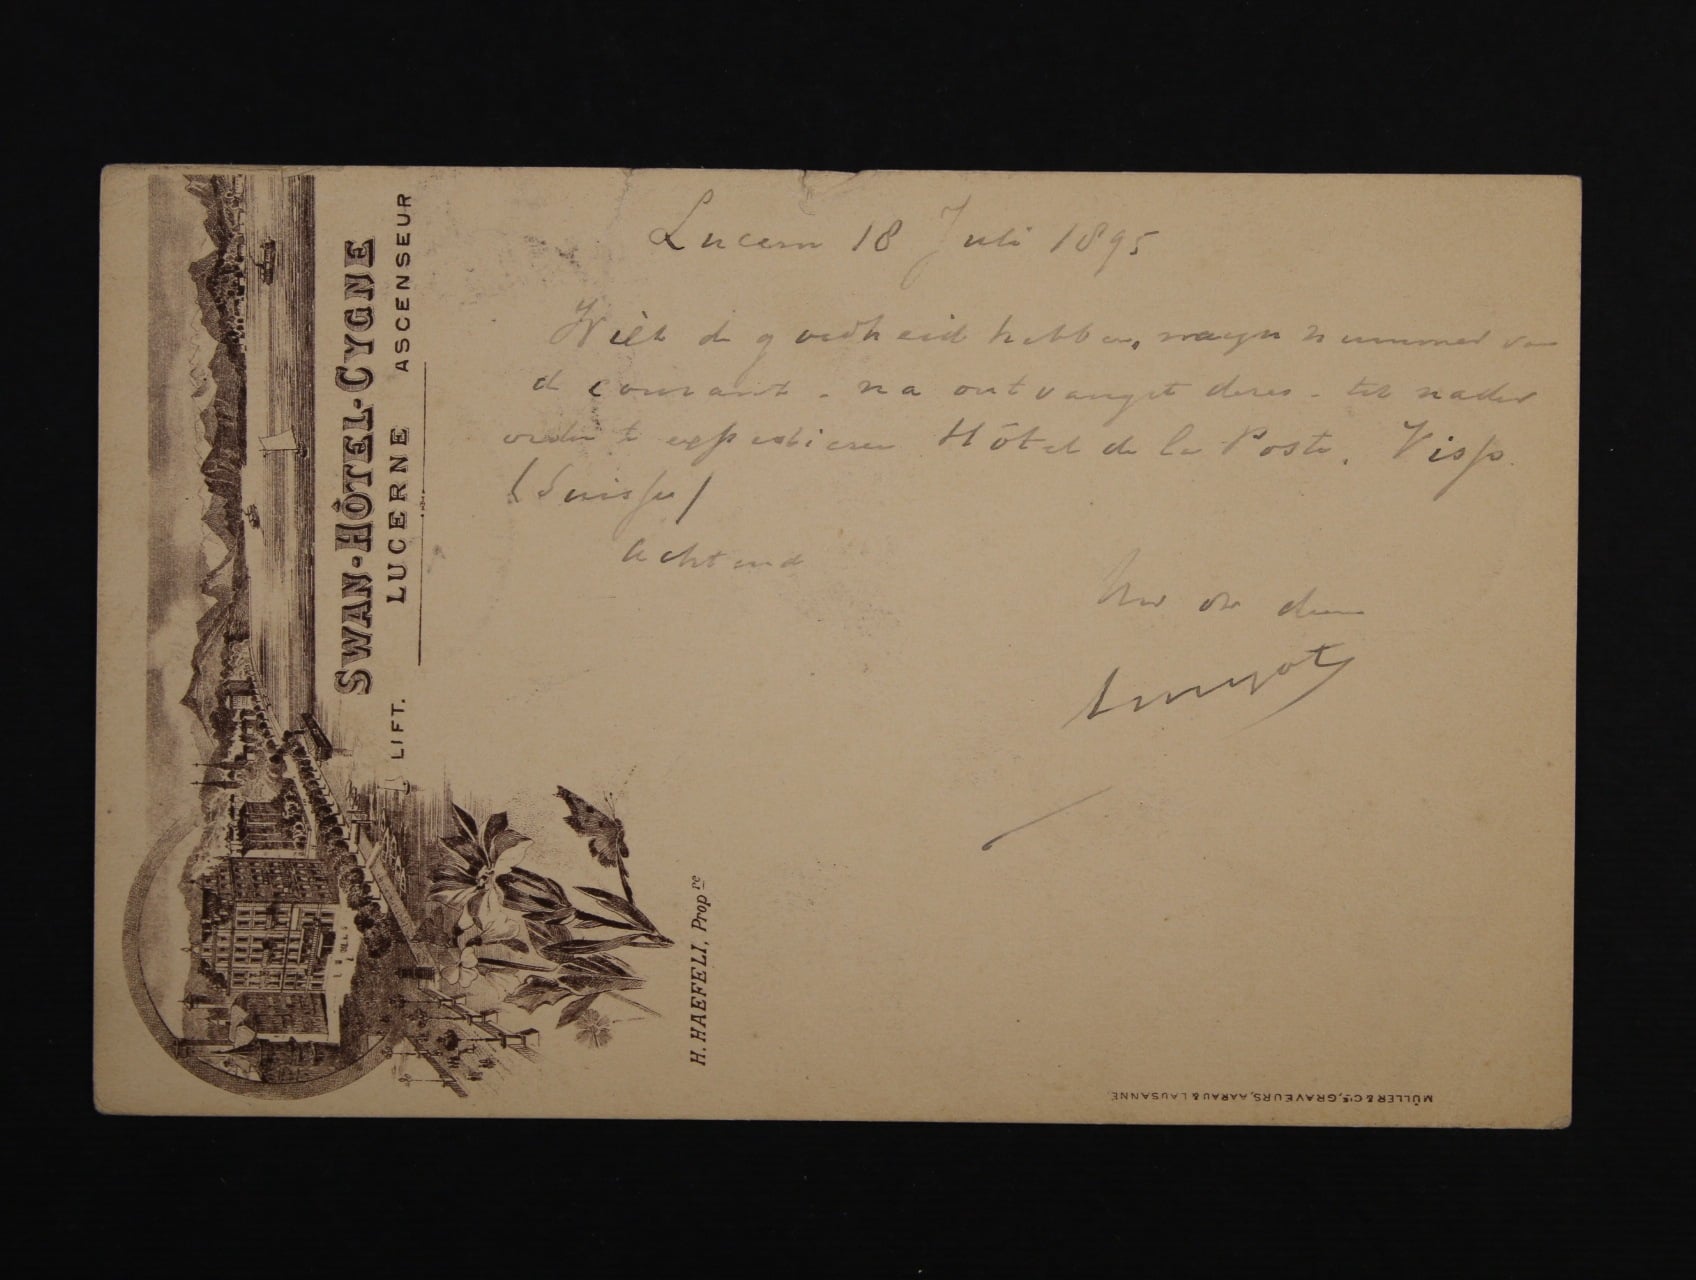 Lucern 18 Juli 1895
Wilt de goedheid hebben, mijn nummer van
de courant - na ontvangst dezes - tot nader
order te expedieeren Hôtel de la Poste, Visp.
(Suisse)
Achtend
Uw dw dien
SWAN-HÔTEL-CYGNE
LIFT. LUCERNE ASCENSEUR
H. HAEFELI, Propre
MÜLLER & CIE, GRAVEURS, AARAU & LAUSANNE.